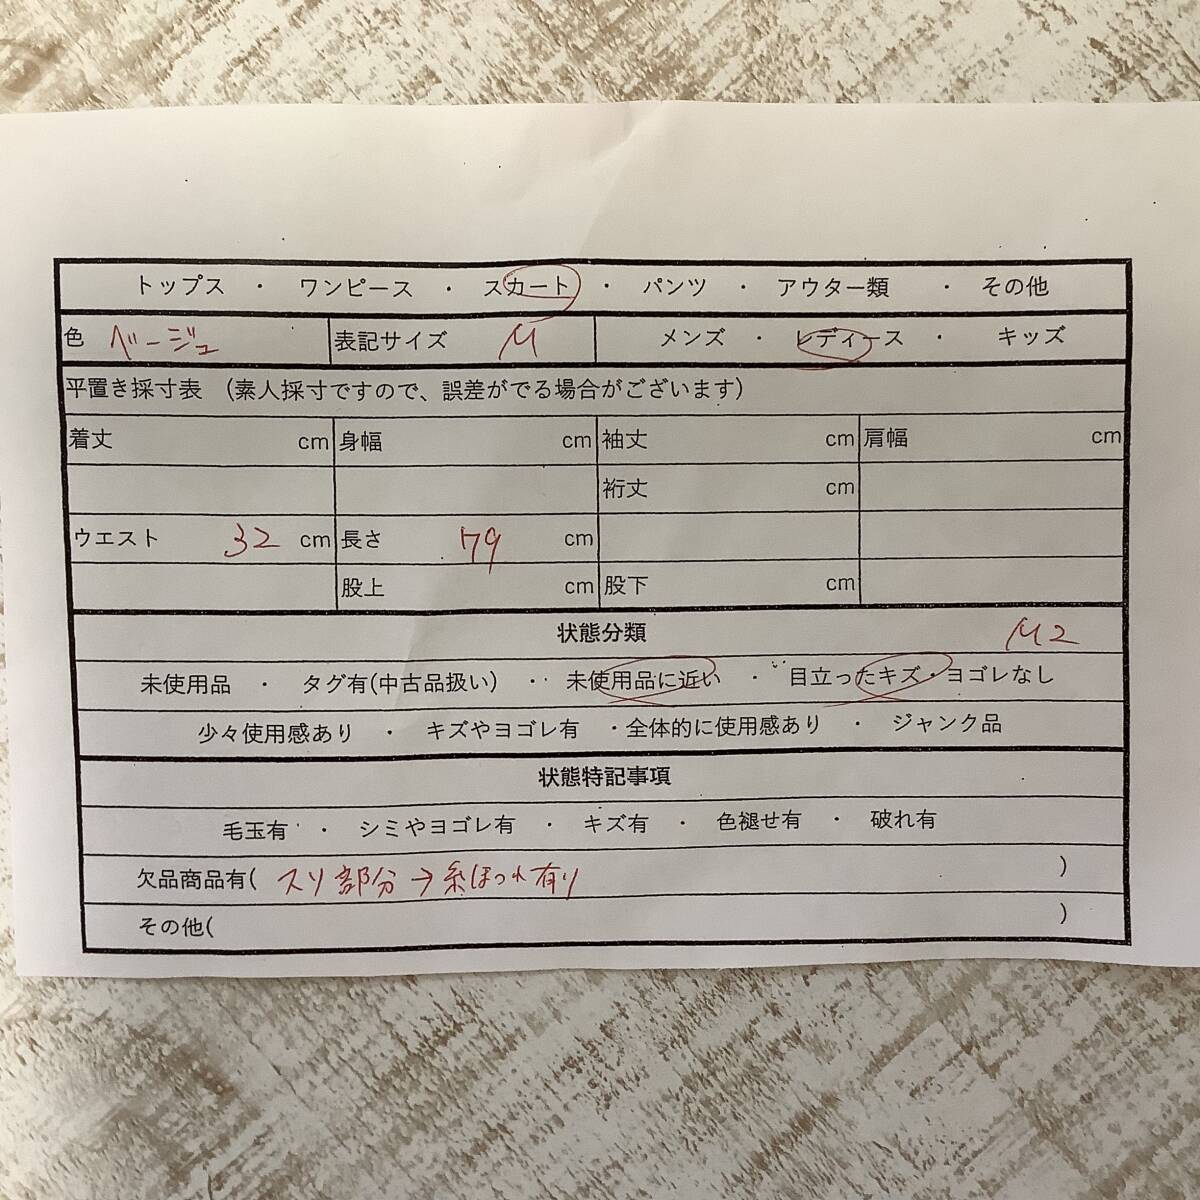 トップス ・ ワンピース ・ スカート ・ パンツ ・ アウター類 ・ その他
色 ベージュ 表記サイズ M メンズ ・ レディース ・ キッズ
平置き採寸表 (素人採寸ですので、誤差がでる場合がございます)
着丈 cm 身幅 cm 袖丈 cm 肩幅 cm
裄丈 cm
ウエスト 32 cm 長さ 79 cm
股上 cm 股下 cm
状態分類 M2
未使用品 ・ タグ有(中古品扱い) ・ 未使用品に近い ・ 目立ったキズ・ヨゴレなし
少々使用感あり ・ キズやヨゴレ有 ・全体的に使用感あり ・ ジャンク品
状態特記事項
毛玉有 ・ シミやヨゴレ有 ・ キズ有 ・ 色褪せ有 ・ 破れ有
欠品商品有( スソ部分→糸ほつれ有り )
その他( )